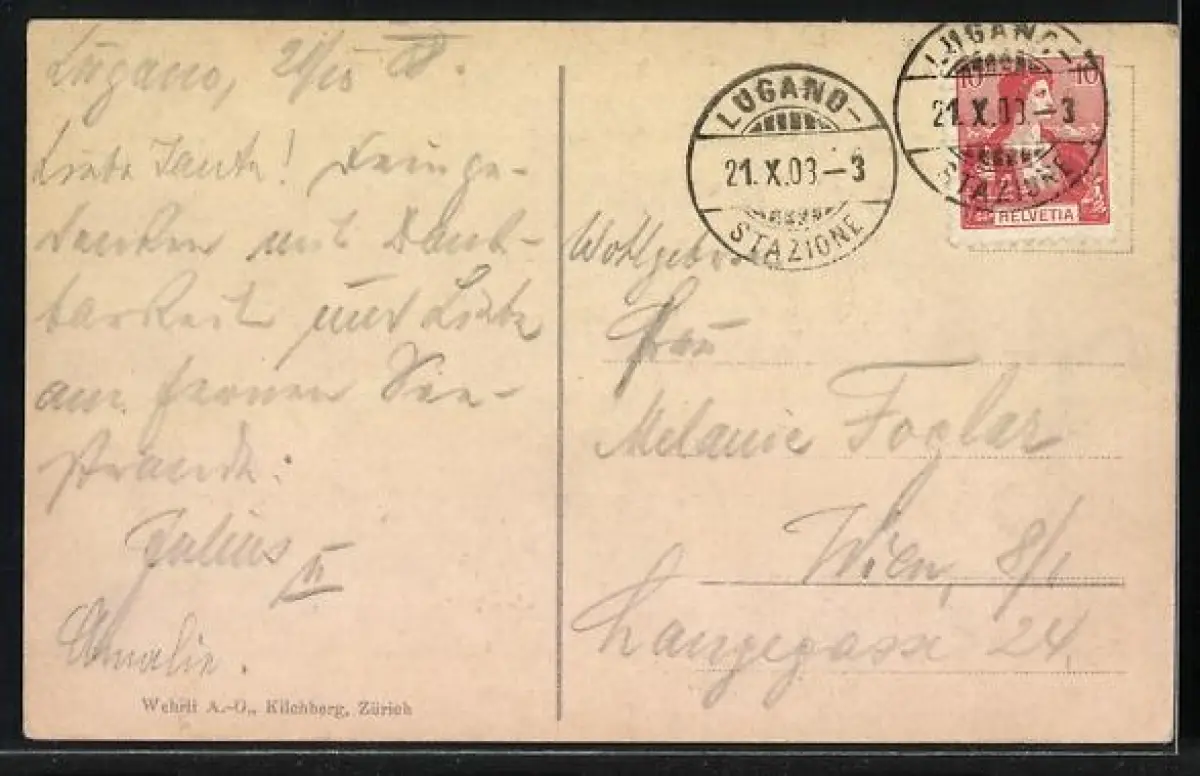 Lugano, 21/10
Liebe Tante! Dein ge-
denken mit Dank-
barkeit und Liebe
am fernen See-
strande:
Julius II
Amalie.
Wehrli A.-G., Kilchberg, Zürich
LUGANO-
21. X. 09 - 3
STAZIONE
LUGANO-
21. X. 09 - 3
STAZIONE
10 10
HELVETIA
Wohlgeboren
Frau
Melanie Foglar
Wien, 8/1
Langegasse 24.